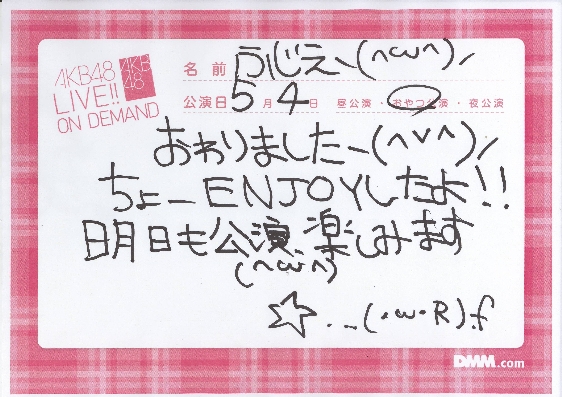 AKB48
LIVE!!
ON DEMAND
AKB
48
名前 ふじえ〜(^ω^)ノ
公演日 5月4日 昼公演・おやつ公演・夜公演
おわりました〜(^∨^)ノ
ちょーENJOYしたよ!!
明日も公演、楽しみます
(^ω^)
☆..(・ω・R).f
DMM.com